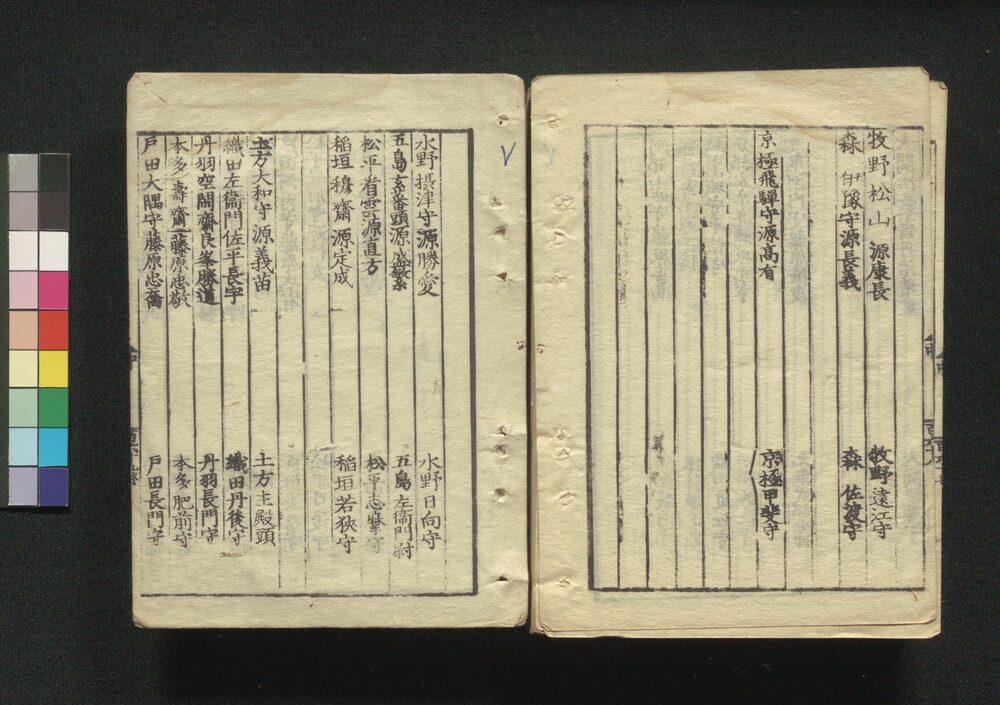 牧野松山 源康長 牧野遠江守
森 伊豫守源長義 森 佐渡守
京極飛騨守源高有 京極甲斐守
水野摂津守源勝愛 水野日向守
五島玄蕃頭源盛繁 五島左衞門尉
松平看雲源直方 松平志摩守
稲垣穆齋源定成 稲垣若狭守
土方大和守源義苗 土方主殿頭
織田左衞門佐平長宇 織田丹後守
丹羽空閑齋良峯勝道 丹羽長門守
本多壽齋藤原忠敬 本多肥前守
戸田大隅守藤原忠喬 戸田長門守